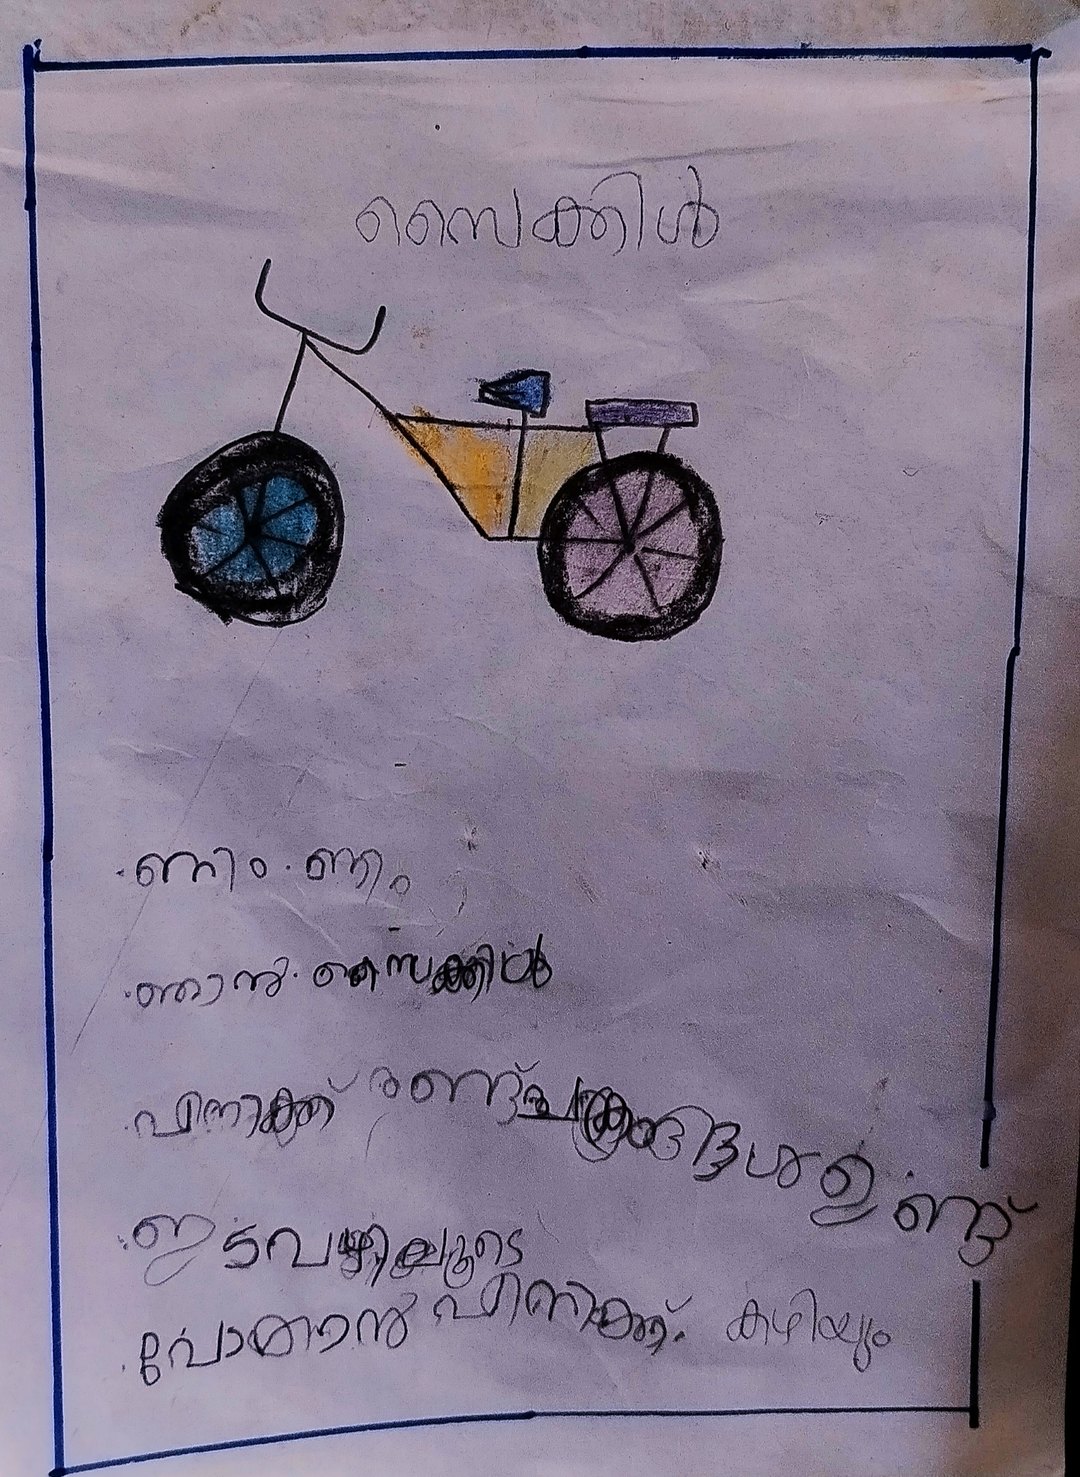 സൈക്കിൾ
ണിം. ണിം
ഞാൻ. സൈക്കിൾ
എനിക്ക് രണ്ട് ചക്രങ്ങൾ ഉണ്ട്
ഇടവഴിയിലൂടെ
പോകാൻ എനിക്ക്. കഴിയും